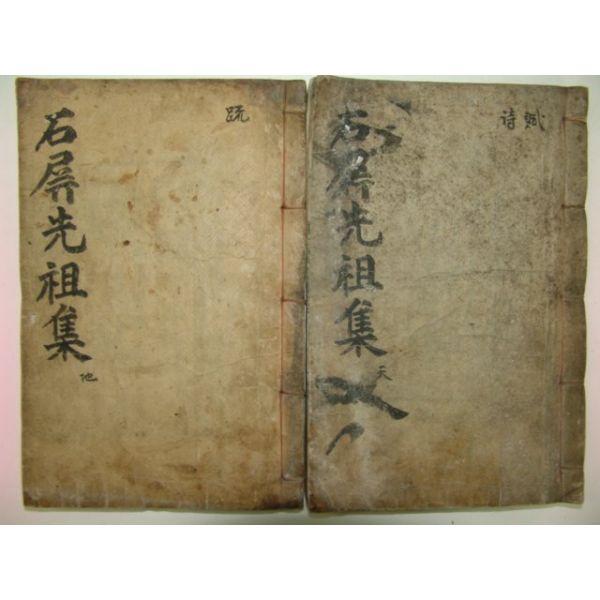 賦
詩
石屛先祖集
天
疏
石屛先祖集
他